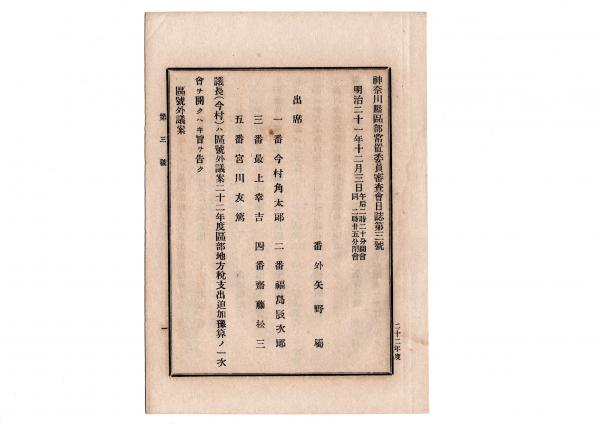 二十二年度
神奈川縣區部常置委員審査會日誌第三號
明治二十一年十二月三日午后二時二十分開會
同 二時廿五分閉會
番外 矢野
出席
一番 今村角太郎 二番 福島辰次郎
三番 最上幸吉 四番 齋藤松三
五番 宮川友篤
議長(今村)ハ區號外議案二十二年度區部地方稅支出追加豫算ノ一次
會ヲ開クヘキ旨ヲ告ク
區號外議案
第三號
一